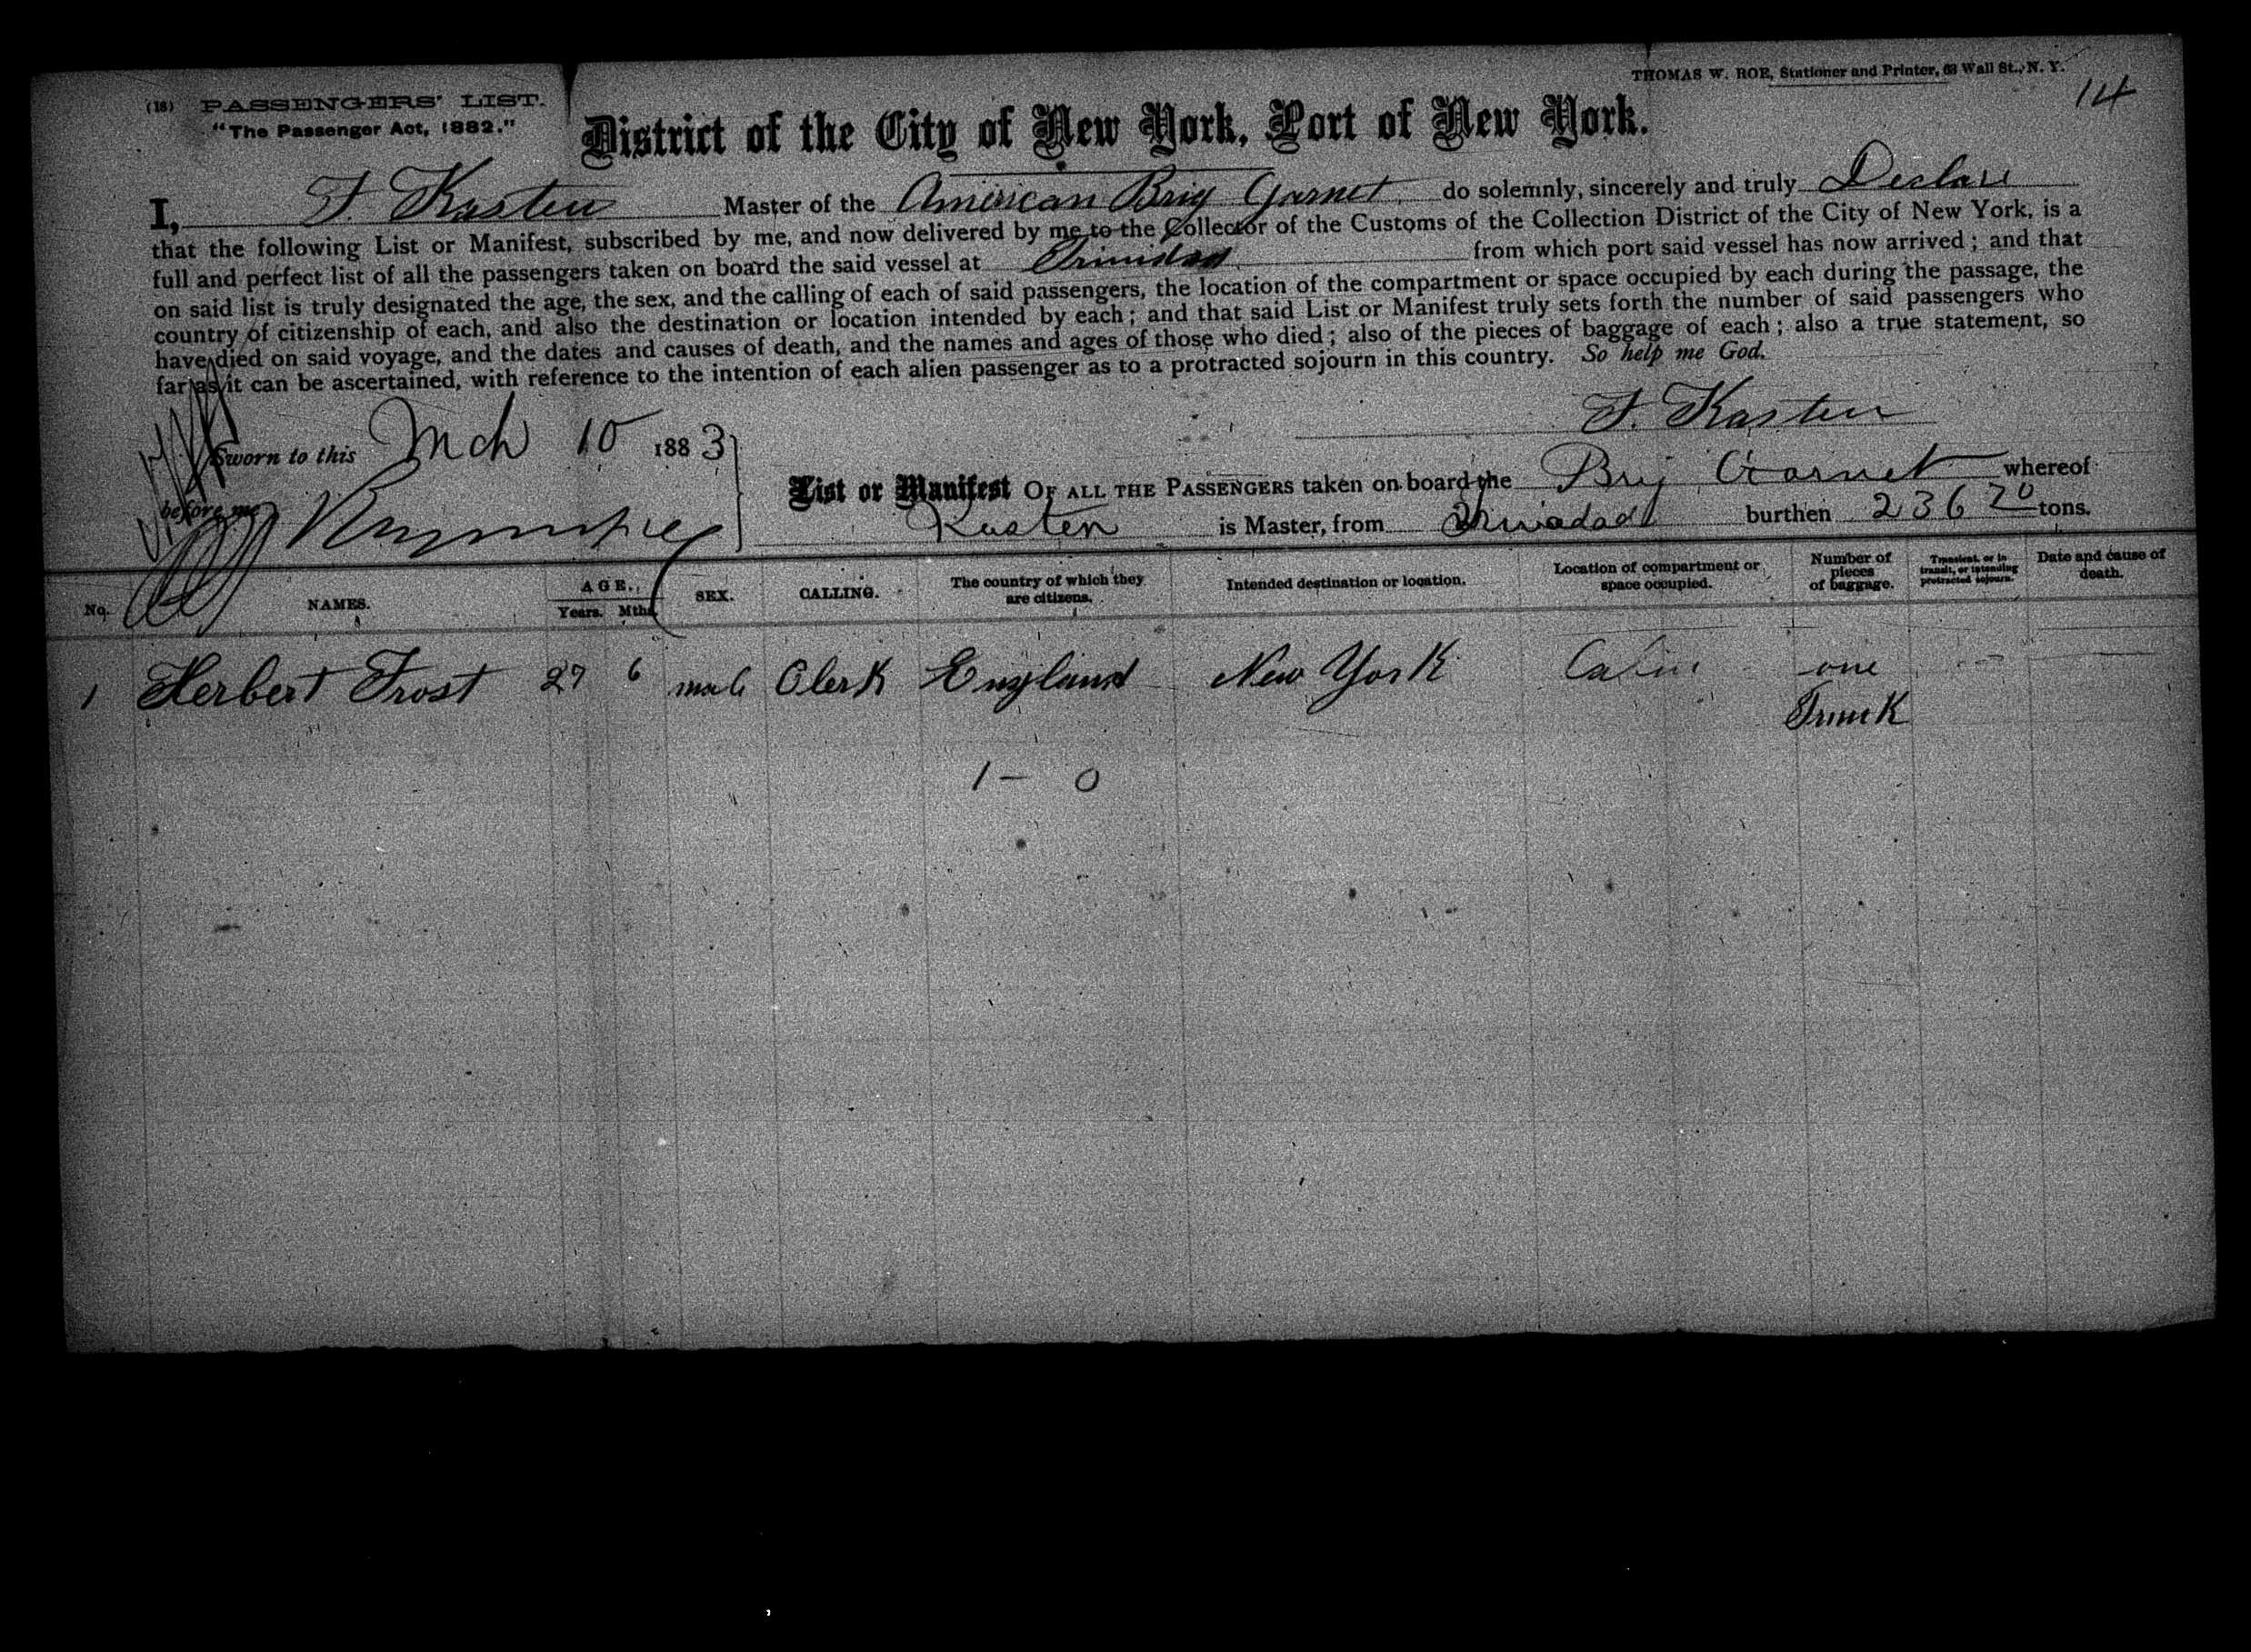 THOMAS W. ROE, Stationer and Printer, 63 Wall St., N. Y.
14
(18) PASSENGERS' LIST.
"The Passenger Act, 1882."
District of the City of New York, Port of New York.
I, F. Kasten Master of the American Brig Garnet do solemnly, sincerely and truly Declare
that the following List or Manifest, subscribed by me, and now delivered by me to the Collector of the Customs of the Collection District of the City of New York, is a
full and perfect list of all the passengers taken on board the said vessel at Trinidad from which port said vessel has now arrived; and that
on said list is truly designated the age, the sex, and the calling of each of said passengers, the location of the compartment or space occupied by each during the passage, the
country of citizenship of each, and also the destination or location intended by each; and that said List or Manifest truly sets forth the number of said passengers who
have died on said voyage, and the dates and causes of death, and the names and ages of those who died; also of the pieces of baggage of each; also a true statement, so
far as it can be ascertained, with reference to the intention of each alien passenger as to a protracted sojourn in this country. So help me God.
F. Kasten
Sworn to this Mch 10 1883
before me
List or Manifest OF ALL THE PASSENGERS taken on board the Brig Garnet whereof
Kasten is Master, from Trinidad burthen 236 70 tons.
No. NAMES. AGE. Years. Mths. SEX. CALLING. The country of which they are citizens. Intended destination or location. Location of compartment or space occupied. Number of pieces of baggage. Transient, or in transit, or intending protracted sojourn. Date and cause of death.
1 Herbert Frost 27 6 male Clerk England New York Cabin one
Trunk
1 - 0